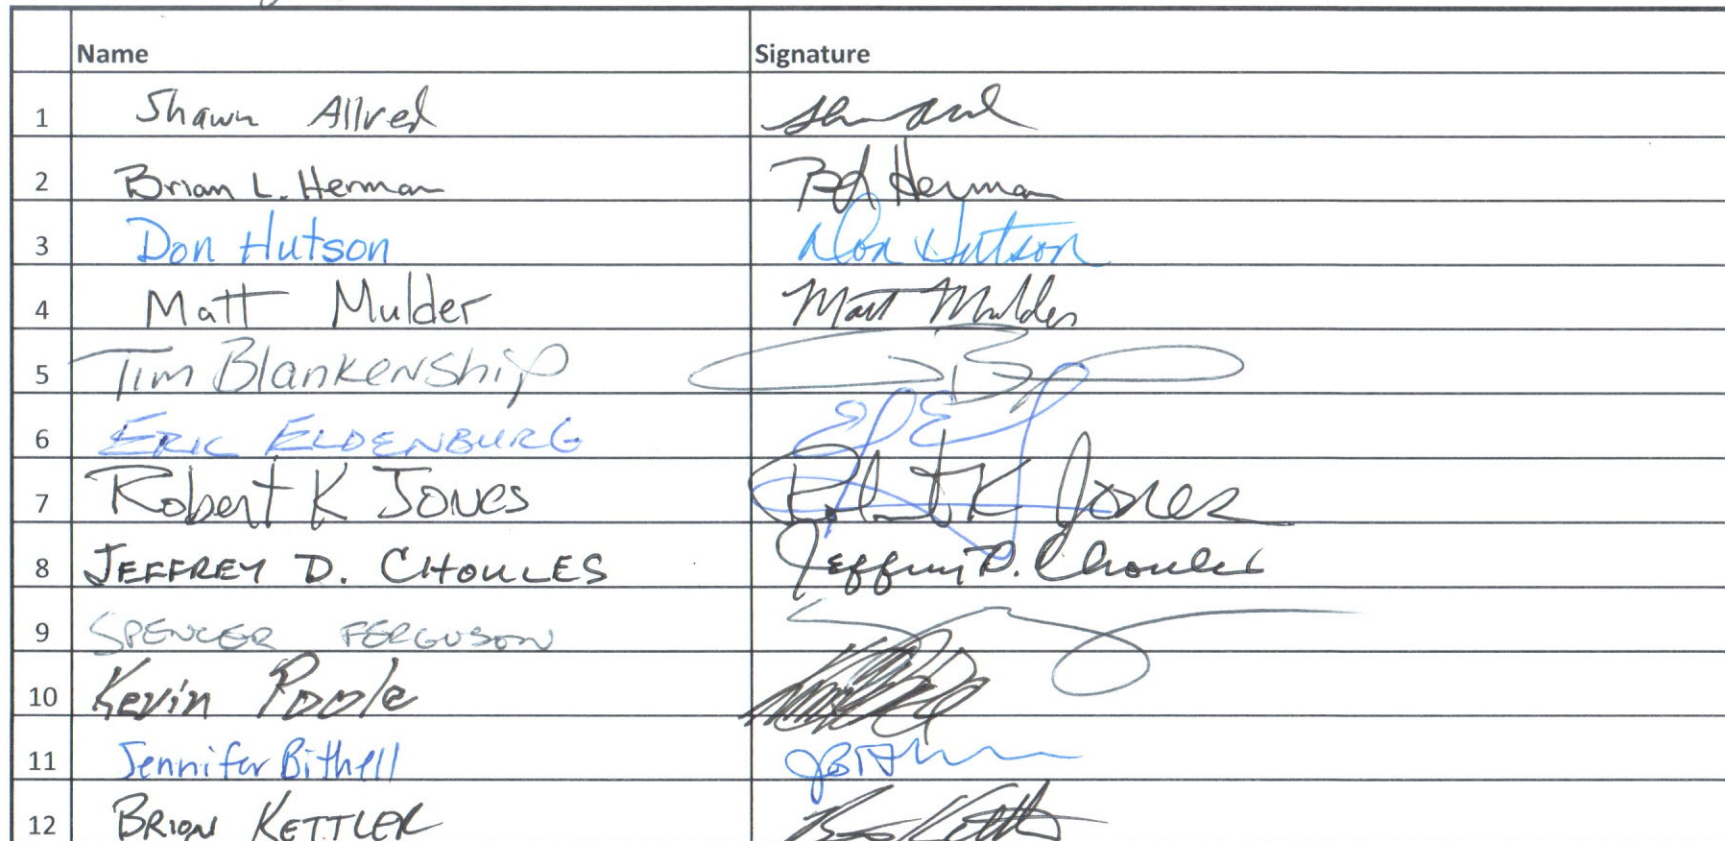 Name Signature
1 Shawn Allred
2 Brian L. Herman Herman
3 Don Hutson Don Hutson
4 Matt Mulder Matt Mulder
5 Tim Blankenship
6 ERIC ELDENBURG
7 Robert K Jones Robert K Jones
8 JEFFREY D. CHOULES Jeffrey D. Choules
9 SPENCER FERGUSON
10 Kevin Poole
11 Jennifer Bithell
12 BRION KETTLER